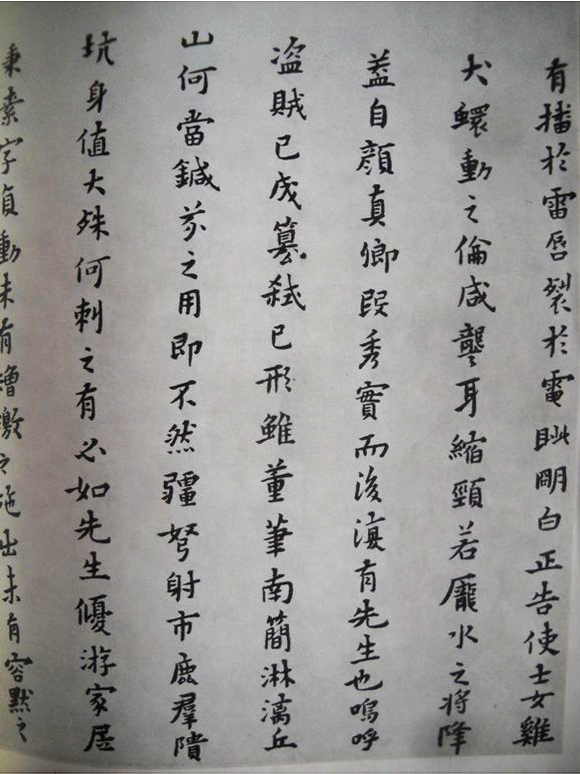 有播於雷唇裂於電眦眀白正告使士女雞
犬蠉動之倫咸聾耳縮頸若龐水之將降
葢自顏真卿段秀實而後復有先生也嗚呼
盜賊已成篡弒已形雖董筆南簡淋漓丘
山何當鍼芥之用即不然疆弩射市鹿羣隤
坑身值大殊何刺之有必如先生優游家居
秉素字貞動未有增繳之施出未有容默之